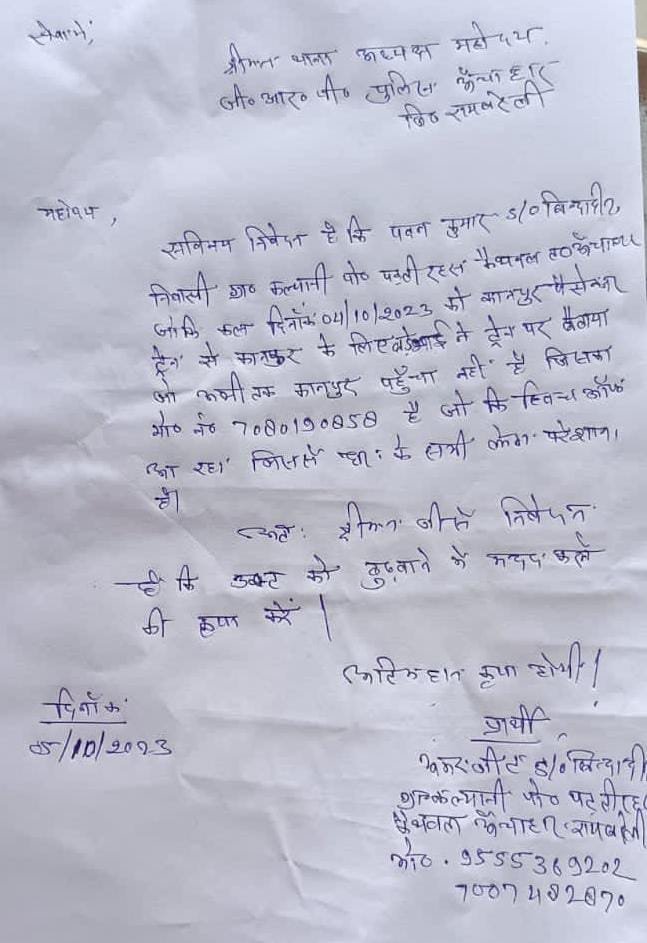 सेवामें,
श्रीमान थाना अध्यक्ष महोदय.
जी० आर० पी० पुलिस ऊँचाहार
जि० रायबरेली
महोदय,
सविनय निवेदन है कि पवन कुमार S/O बिन्दादीन
निवासी ग्रा० कल्यानी पो० पट्टी रहस कैथवल ऊँचाहार
जोकि कल दिनाँक 04/10/2023 को कानपुर पैसेन्जर
ट्रेन से कानपुर के लिए बडे भाई ने ट्रेन पर बैठाया
जो अभी तक कानपुर पहुँचा नहीं है जिसका
मो० नं० 7080190858 है जो कि स्विच ऑफ
आ रहा जिससे घर के सभी लोग परेशान
है।
अतः श्रीमान जी से निवेदन
है कि उक्त को ढुढ़वाने में मदद करने
की कृपा करें।
अति महान कृपा होगी।
दिनाँक
05/10/2023
प्रार्थी
अमरजीत S/O बिन्दादी
ग्रा० कल्यानी पो० पट्टी रहस
कैथवल ऊँचाहार रायबरेली
मो०. 9555369202
7007482870